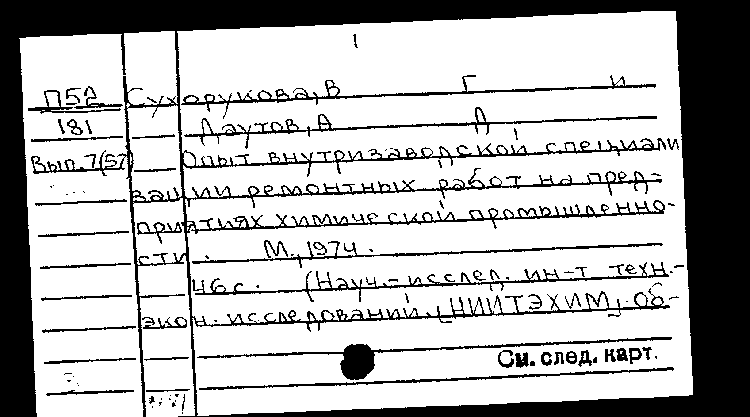 1
П52 Сухорукова, В Г и
181 Даутов, А Д
Вып. 7(57) Опыт внутризаводской специали
зации ремонтных работ на пред-
приятиях химической промышленно-
сти. М., 1974.
46 с. (Науч.-исслед. ин-т техн.-
экон. исследований. [НИИТЭХИМ]. Об-
См. след. карт.